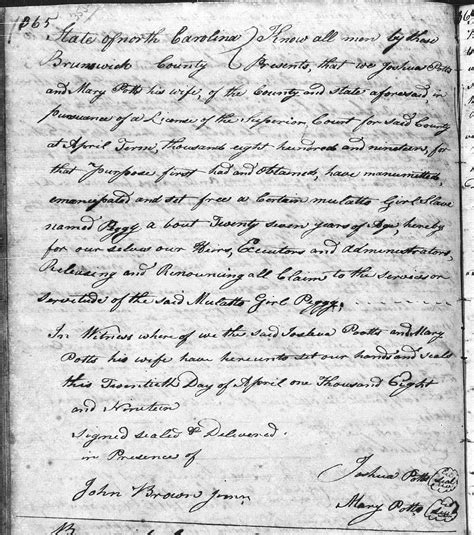 365
State of north Carolina Know all men by these
Brunswick County Presents, that we Joshua Potts
and Mary Potts his wife, of the County and State aforesaid, in
pursuance of a License of the Superior Court for said County
at April Term, thousands eight hundred and nineteen, for
that Purpose first had and obtained, have manumitted,
emancipated and set free a Certain mulatto Girl Slave
named Peggy a bout Twenty seven years of Age, hereby
for our selves our Heirs, Executors and Administrators,
Releasing and Renouncing all Claim to the Services or
Servitude of the said Mulatto Girl Peggy.
In Witness where of we the said Joshua Potts and Mary
Potts his wife have hereunto set our hands and seals
this Twentieth Day of April one Thousand Eight
and Nineteen
Signed sealed & Delivered
in Presence of
Joshua Potts seal
John Brown Junr.
Mary Potts seal